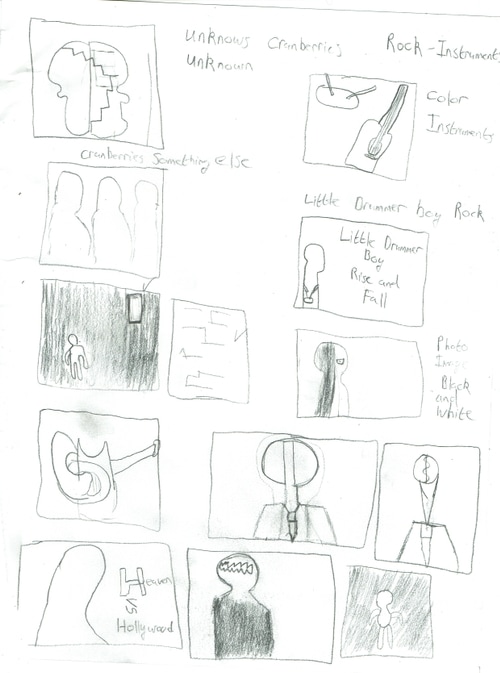 Unknows Cranberries
Unknown
Rock - Instruments
Color
Instruments
Cranberries Something Else
Little Drummer boy Rock
Little Drummer
Boy
Rise and
Fall
Photo
Image
Black
and
White
Heaven
VS
Hollywood